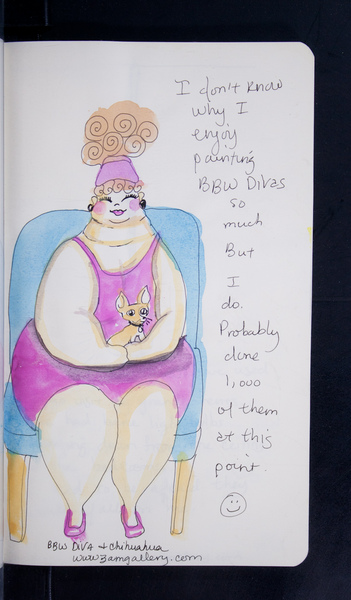 I don't know
why I
enjoy
painting
BBW Divas
so
much
But
I
do.
Probably
done
1,000
of them
at this
point.
BBW Diva + chihuahua
www.zamgallery.com